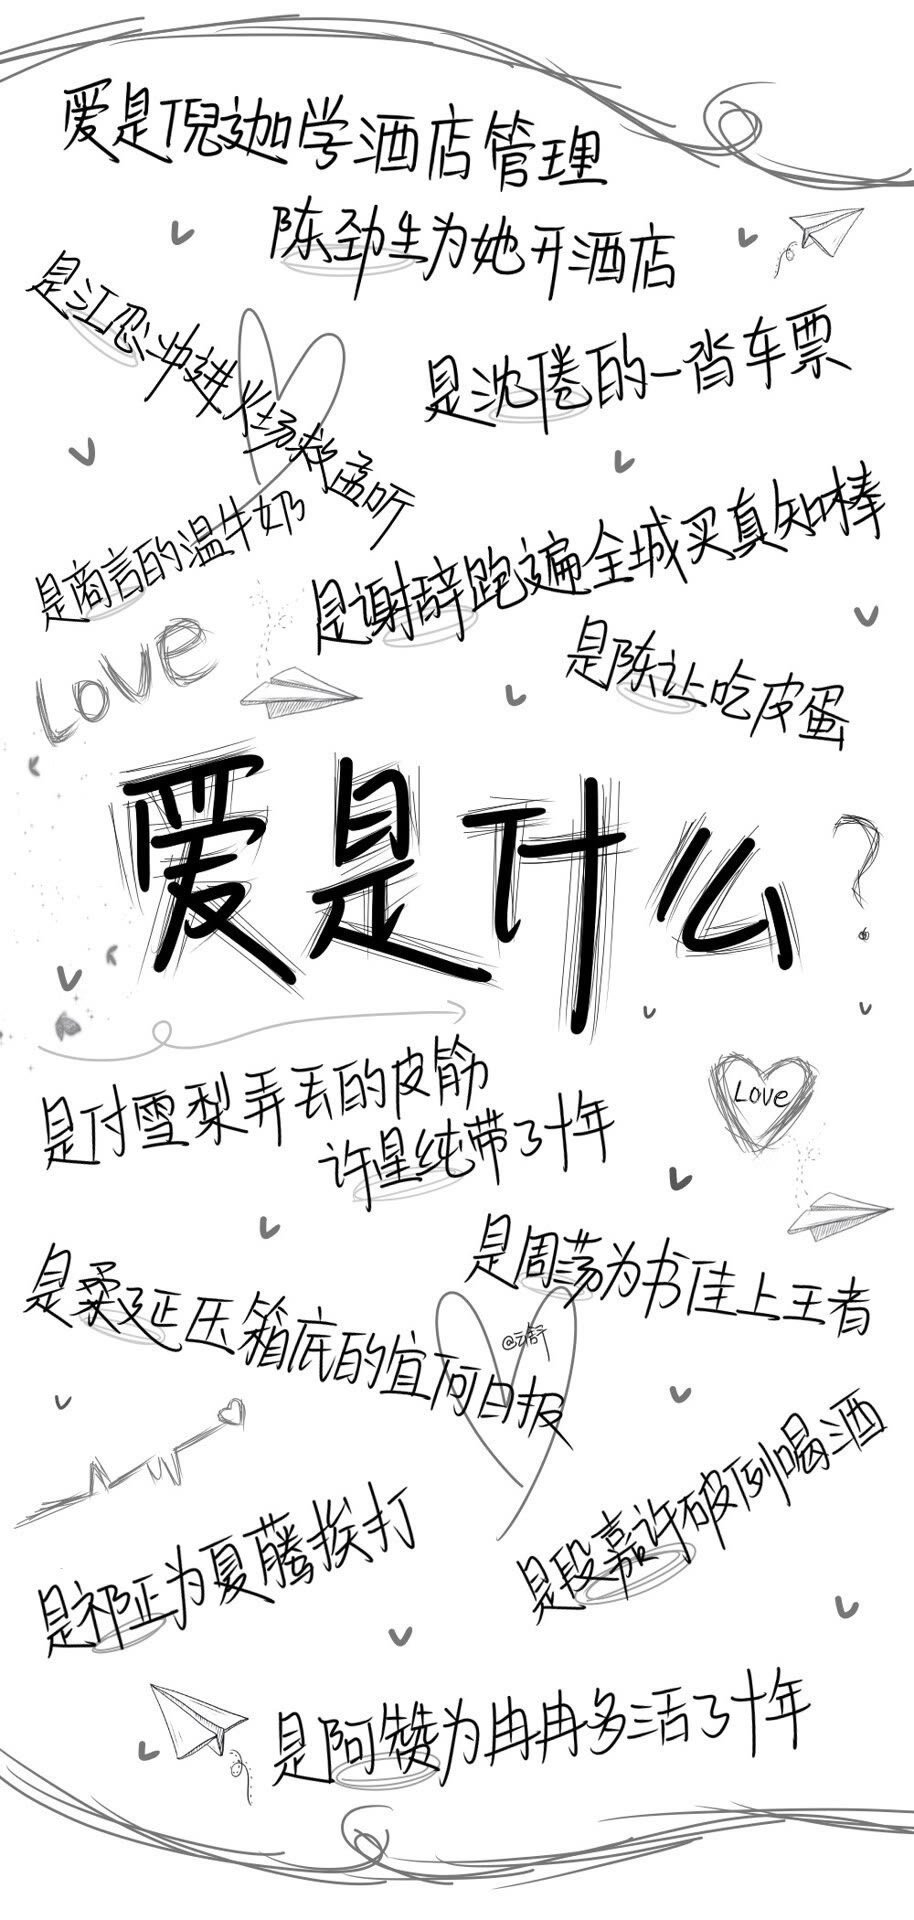 爱是倪迦学酒店管理
陈劲生为她开酒店
是江忍冲进火场救孟听
是沈倦的一沓车票
是商言的温牛奶
是谢辞跑遍全城买真知棒
是陈让吃皮蛋
Love
爱是什么?
是付雪梨弄丢的皮筋
许星纯带了十年
Love
是周荡为书佳上王者
是柔延压箱底的宜河日报
是段嘉许破例喝酒
是祁正为夏藤挨打
是阿赞为冉冉多活了十年